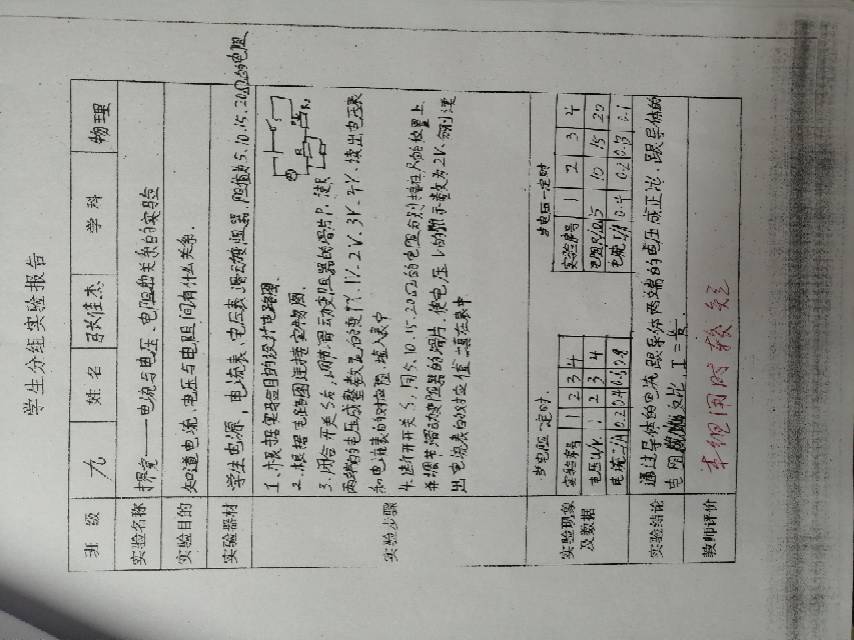 学生分组实验报告
班级 九 姓名 张佳杰 学科 物理
实验名称 探究——电流与电压、电阻的关系的实验
实验目的 知道电流、电压与电阻间有什么关系.
实验器材 学生电源,电流表、电压表、滑动变阻器、阻值为5.10.15.20Ω的电阻
实验步骤
1.根据实验目的设计电路图.
2.根据电路图连接实物图.
3.闭合开关S后,调节滑动变阻器的滑片P,使R
两端的电压成整数
1V.2V.3V.4V.读出电压表
和电流表的对应值,填入表中
4.断开开关S,用5.10.15.20Ω的电阻分别接在R的位置上
并调节滑动变阻器的滑片,使电压V的示数为2V.分别读
出电流表的对应值填在表中
实验现象及数据
当电阻一定时. 当电压一定时
实验序号 1 2 3 4
电压U/V 1 2 3 4
电流I/A 0.2 0.4 0.6 0.8
实验序号 1 2 3 4
电阻R/Ω 5 10 15 20
电流I/A 0.4 0.2 0.13 0.1
实验结论 通过导体的电流,跟导体两端的电压成正比.跟导体的
电阻成反比. I=U/R.
教师评价 本组用时较短